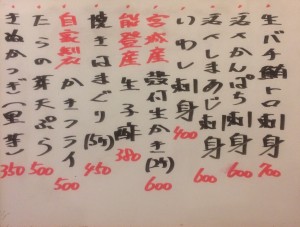 生バチ鮪トロ刺身 700
活〆かんぱち刺身 600
活〆しまあじ刺身 600
いわし刺身 400
宮城産 殻付生かき(2ケ) 600
能登産 生子酢 380
焼きはまぐり(5ケ) 450
自家製 かきフライ 500
たらの芽天ぷら 500
きぬかつぎ(里芋) 350